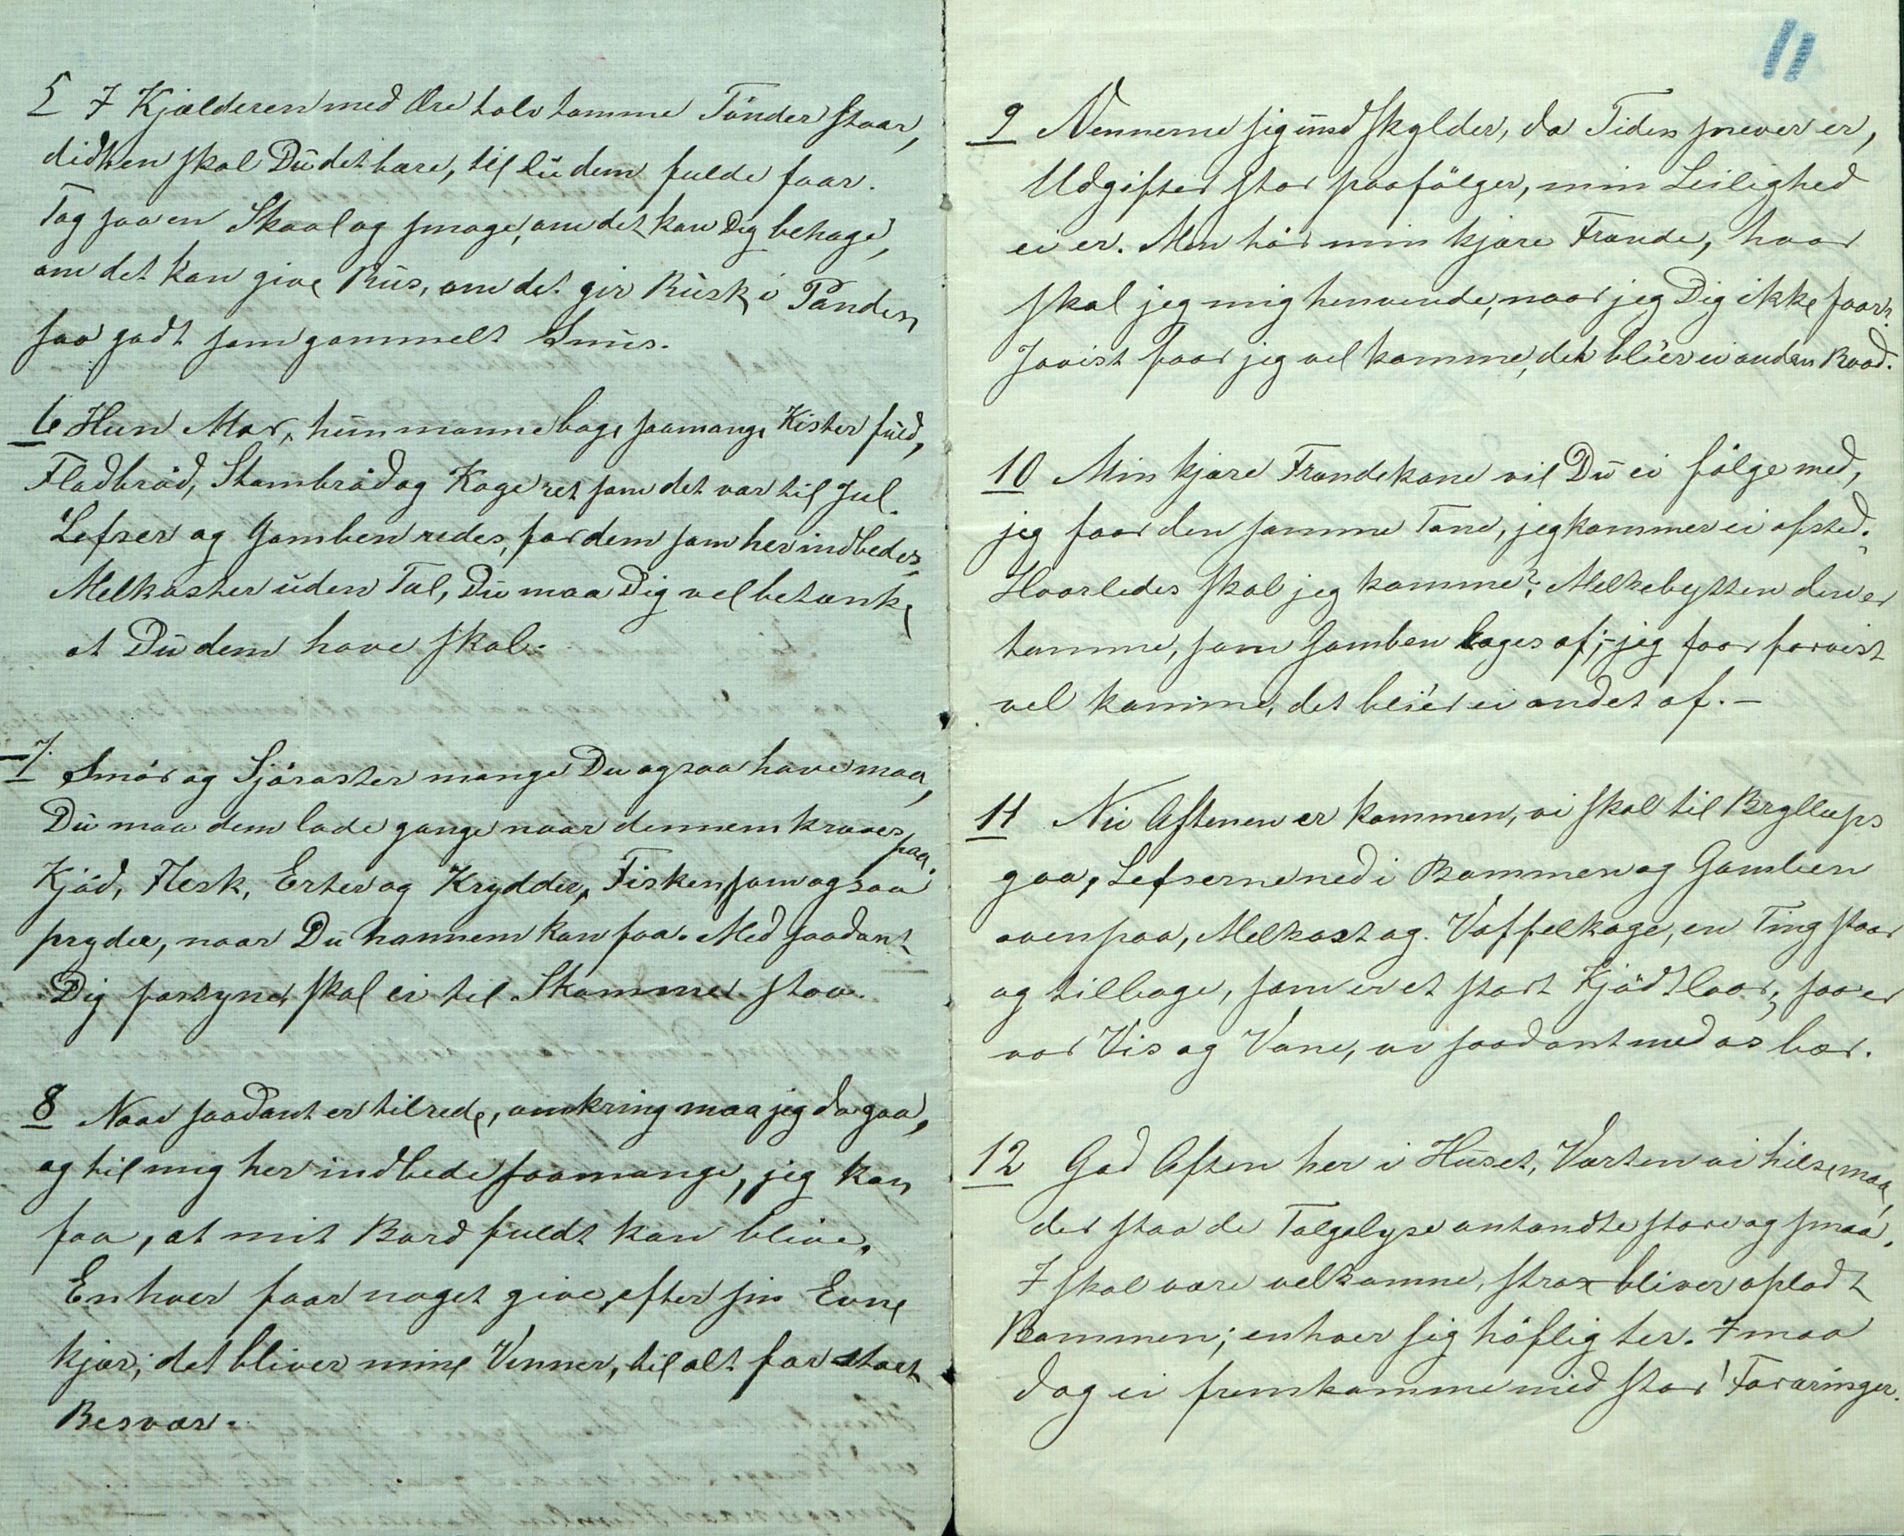 5 I Kjælderen med Øre tolv tomme Tönder staar,
didhen skal Du det bære, til Du dem fulde faar.
Tag saa en Skaal og smage, om det kan Dig behage,
om det kan give Rus, om det gir Rusk i Panden
saa godt som gammelt Snus.
6 Hun Mor, hun maane bage saa mange Kister fuld,
Fladbröd, Stombröd og Kage ret som det var til Jul.
Lefser og Gomben redes, for dem som her indbedes,
Melkoster uden Tal, Du maa Dig vel betænke
at Du dem have skal.
7. Smör og Sjöroster mange Du ogsaa have maa,
Du maa dem lade gange naar dennem kræves paa.
Kjöd, Flesk, Erter og Krydder, Fisken som ogsaa
pryder, naar Du hannem kan faa. Med saadant
Dig forsyne, skal ei til Skamme staa.
8 Naar saadant er tilrede, omkring maa jeg da gaa,
og til mig her indbede saamange, jeg kan
faa, at mit Bord fuldt kan blive.
Enhver faar noget give, efter sin Evne
kjær; det bliver mine Venner, til alt for stort
Besvær.
11
9 Vennerne sig undskylder, da Tiden snever er,
Udgifter stor paafölger, min Leilighed
ei er. Men hör min kjære Frænde, hvor
skal jeg mig henvende, naar jeg Dig ikke faar?
Javist faar jeg vel komme, det bli'er ei anden Raad.
10 Min kjære Frændekone vil Du ei fölge med,
jeg faar den samme Tone, jeg kommer ei afsted.
Hvorledes skal jeg komme? Melkebytten den er
tomme, som Gomben lages af;- jeg faar forvist
vel komme, det bli'er ei andet af. -
11 Nu Aftenen er kommen, vi skal til Bryllups
gaa, Lefserne ned i Bommen og Gomben
ovenpaa, Melkost og Vaffelkage, en Ting staar
og tilbage, som er et stort Kjödtlaar; saa er
vor Vis og Vane, vi saadant med os bær.
12 God Aften her i Huset, Værten vi hilse maa,
der staa de Talgelyse antændte store og smaa.
I skal være velkomne, strax bliver opladt
Bommen; enhver sig höflig ter. I maa
dog ei fremkomme med stor' Foræringer.